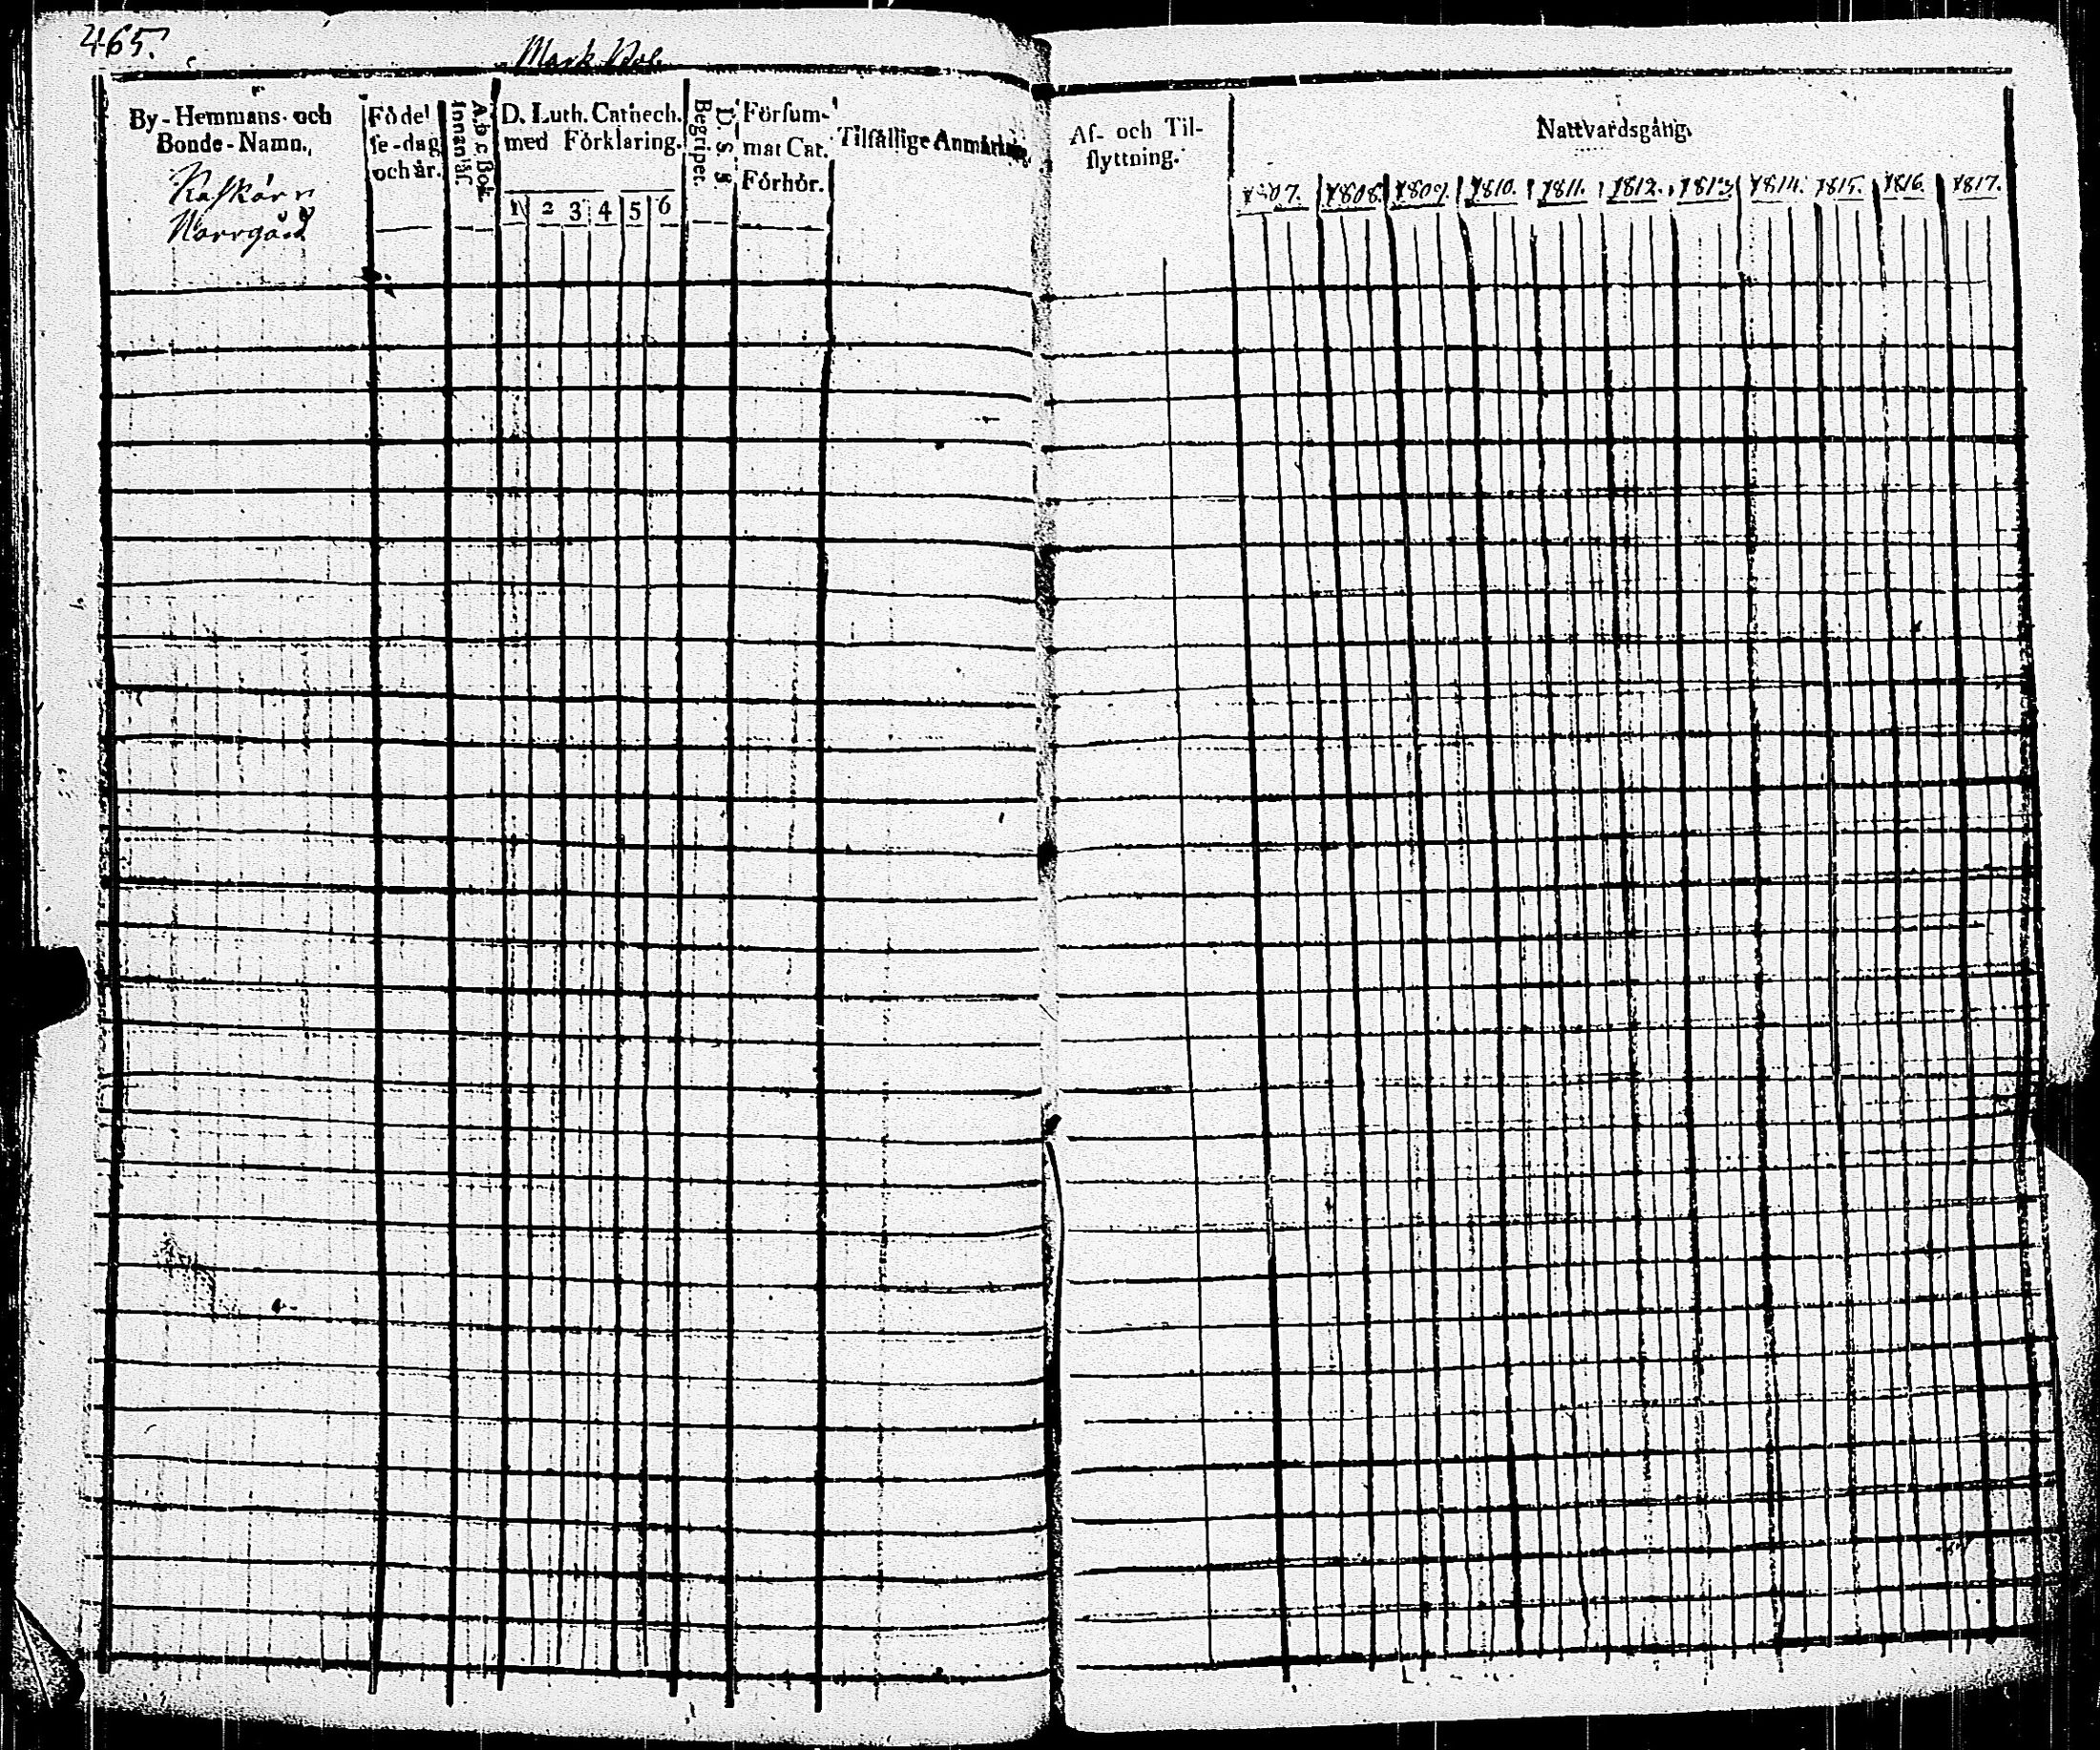 465.
Mark Bol.
By-Hemmans- och
Bonde-Namn.
Norrgård
Födel
se-dag
och år.
A b c Bok
Innanlär.
D. Luth. Cathech.
med Förklaring.
1 2 3 4 5 6
D. S. S.
Begriper.
Försum-
mat Cat.
Förhör.
Tilfällige Anmärkn.
Af- och Til-
flyttning.
Nattvardsgång.
1807. 1808. 1809. 1810. 1811. 1812. 1813 1814. 1815. 1816. 1817.